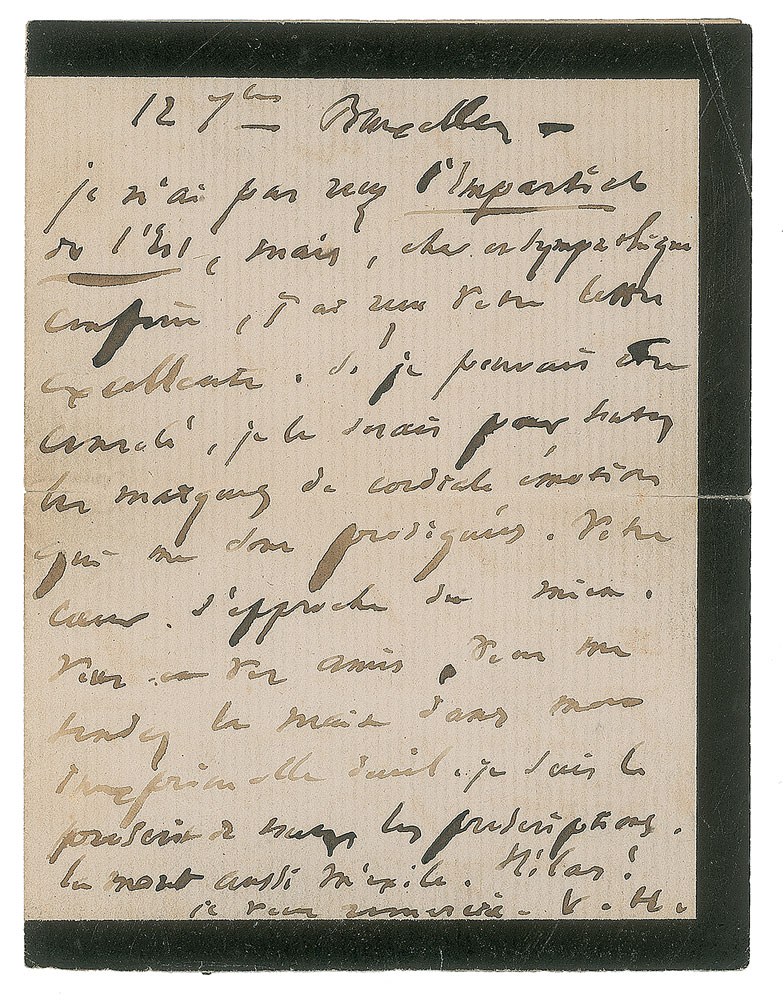 12 7bre Bruxelles —
je n'ai pas reçu l'Impartial
de l'Est, mais, cher et sympathique
confrère, j'ai reçu votre lettre
excellente. Si je pouvais être
consolé, je le serais par toutes
les marques de cordiale émotion
qui me sont prodiguées. Votre
cœur s'approche du mien.
Vous et vos amis, vous me
tendez la main dans mon
inexprimable deuil. je suis le
proscrit de toutes les proscriptions.
la mort aussi m'exile. Hélas!
je vous remercie. V. H.